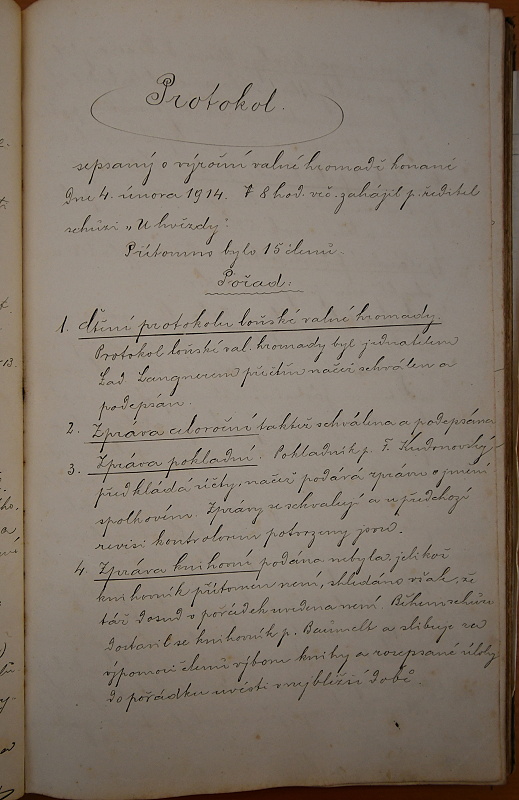 Protokol.
sepsaný o výroční valné hromadě konané
dne 4. února 1914. V 8 hod. več. zahájil p. ředitel
schůzi „U hvězdy".
Přítomno bylo 15 členů.
Pořad:
1. Čtení protokolu loňské valné hromady.
Protokol loňské val. hromady byl jednatelem
Lad. Langnerem přečtín načež schválen a
podepsán.
2. Zpráva celoroční taktéž schválena a podepsána
3. Zpráva pokladní. Pokladník p. F.
předkládá účty, načež podává zprávu o jmění
spolkovém. Zprávy se schvalují a u předchozí
revisi kontrolorem potvrzeny jsou.
4. Zpráva knihovní podána nebyla, jelikož
knihovník přítomen není, shledáno však, že
táž dosud v pořádek uvedena není. Během schůze
dostavil se knihovník p. Baumelt a slibuje za
výpomoci členů výboru knihy a rozepsané úlohy
do pořádku uvésti v nejbližší době.